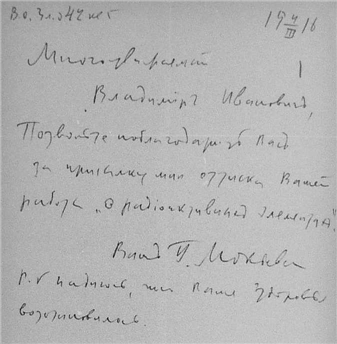 19 4/III 16
Многоуважаемый
Владиміръ Ивановичъ,
Позвольте поблагодарить Васъ
за присылку мнѣ оттиска Вашей
работы „О радіоактивныхъ элементахъ".
P.S. надѣюсь, что Ваше здоровье
возстановилось.